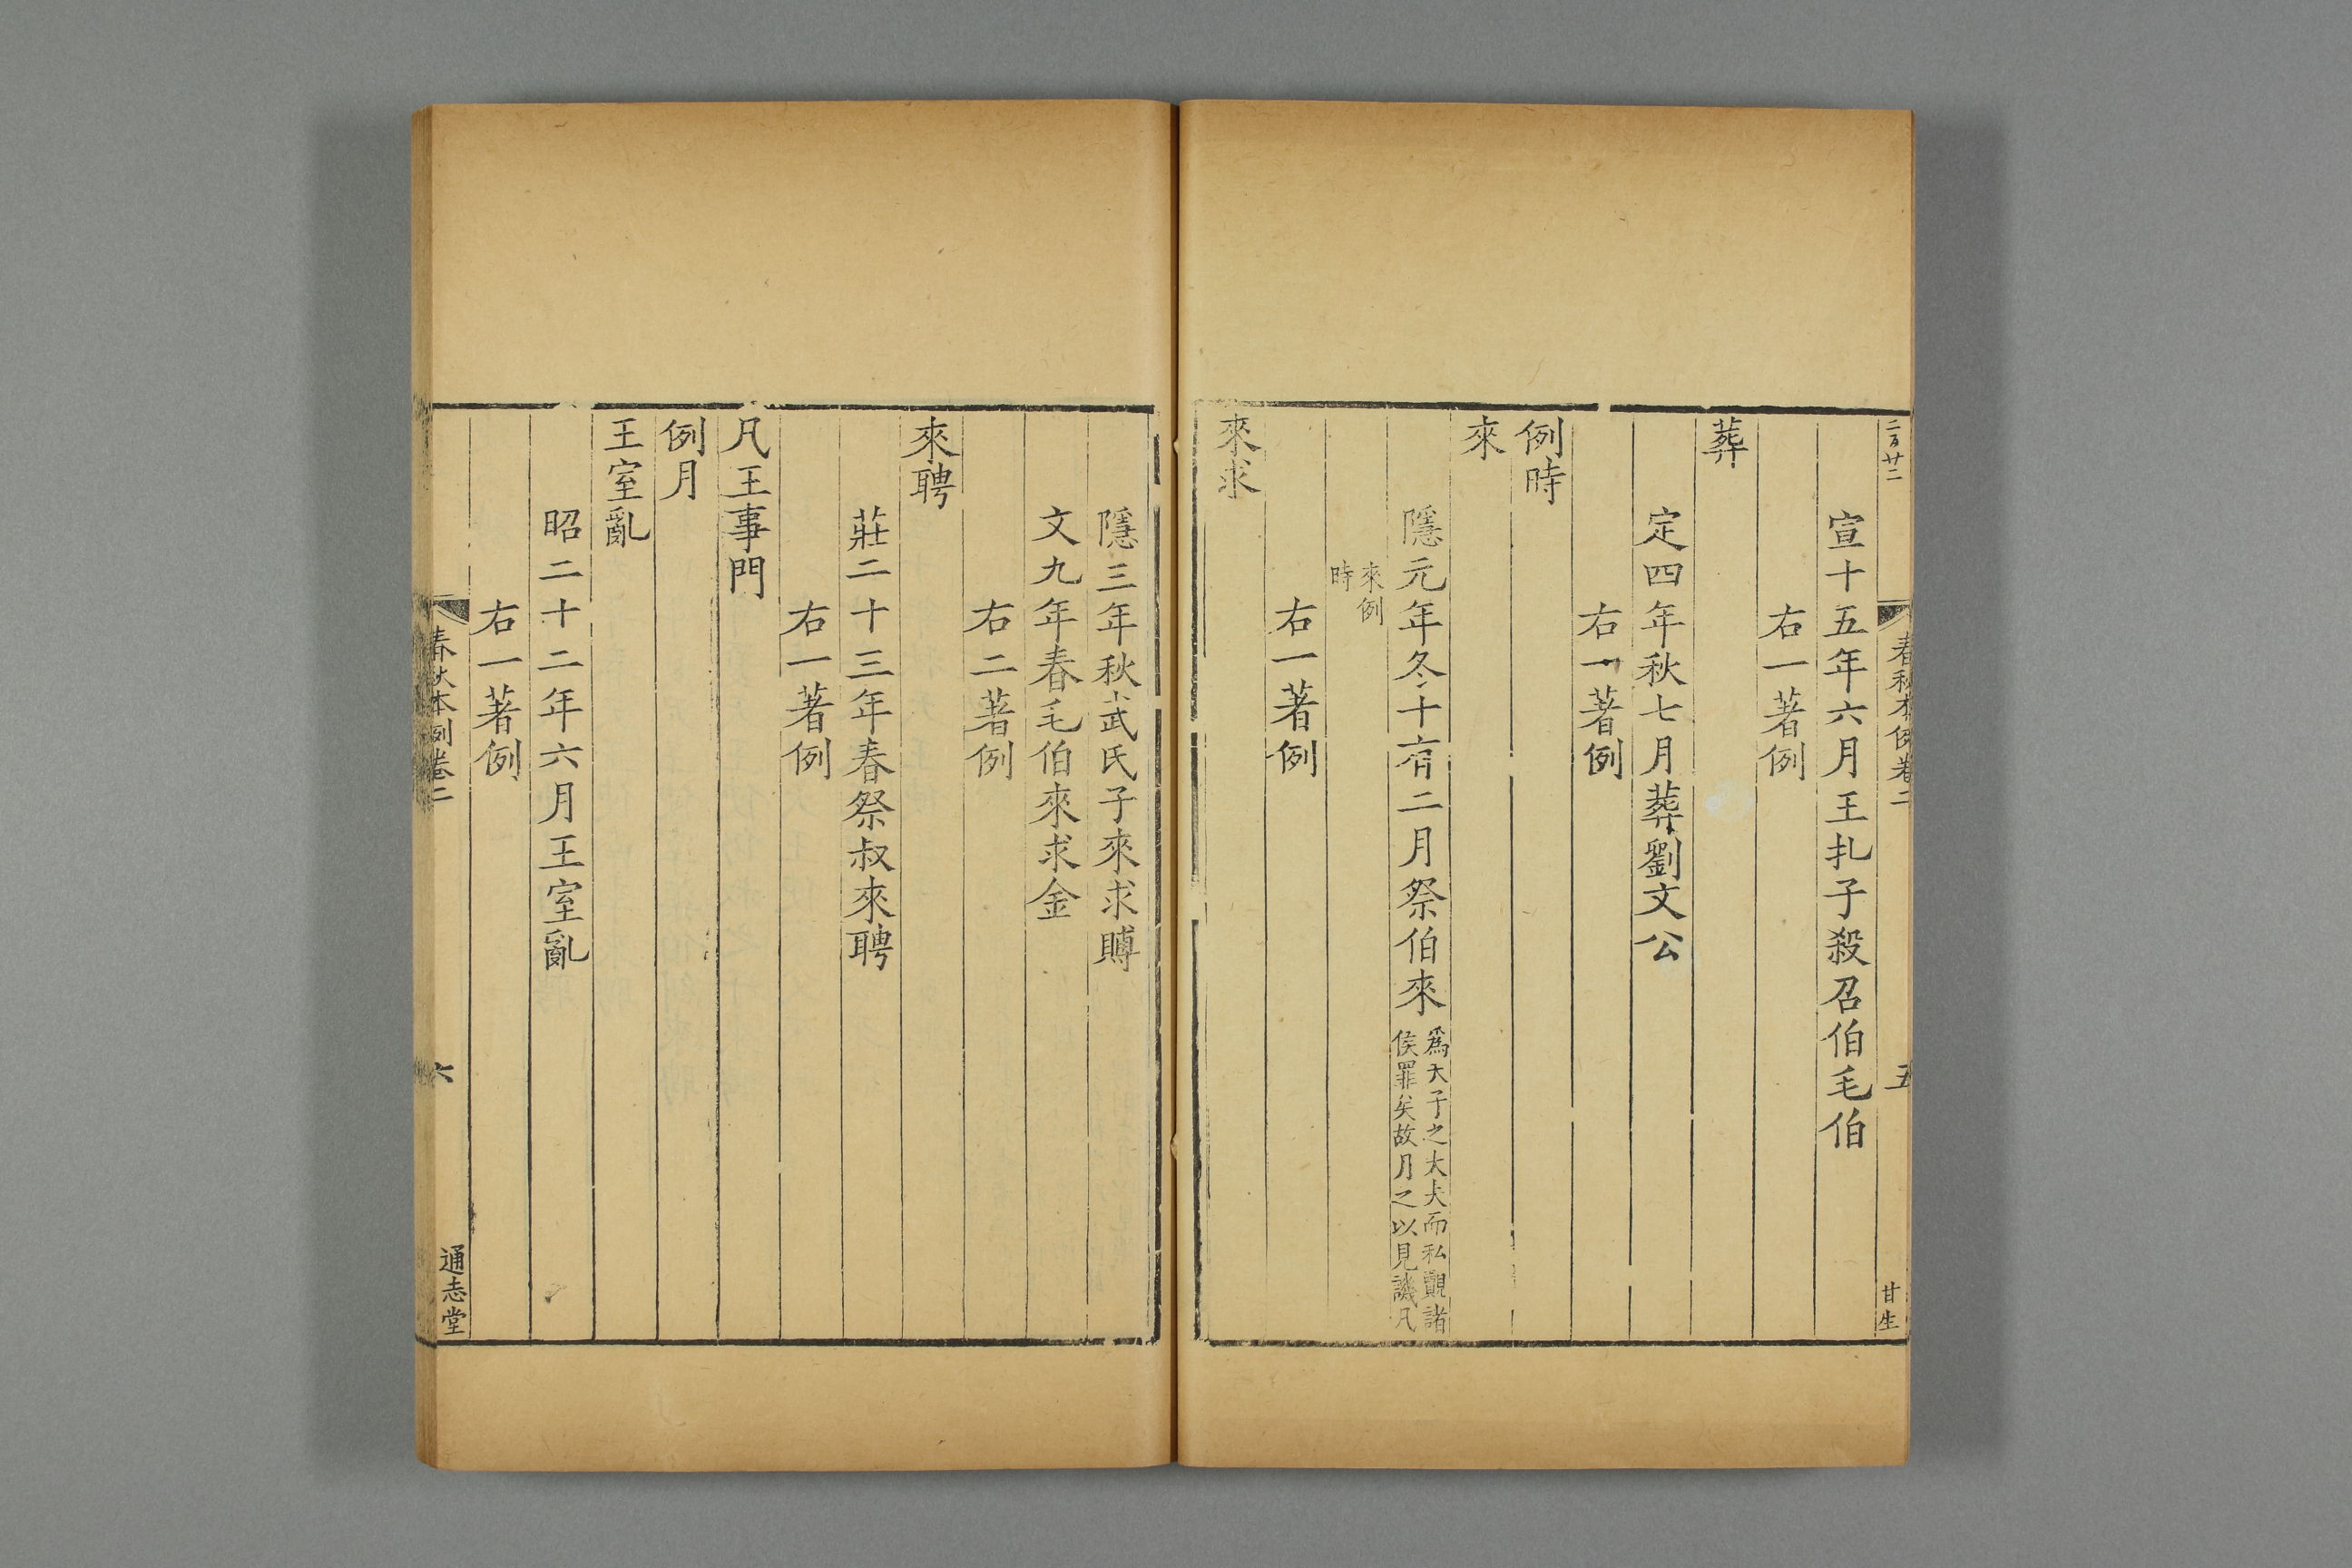 二百廿二
春秋本例卷二
五
甘生
宣十五年六月王札子殺召伯毛伯
右一著例
葬
定四年秋七月葬劉文公
右一著例
例時
來
隱元年冬十有二月祭伯來
爲天子之大夫而私覿諸
侯罪矣故月之以見譏凡
來例
時
右一著例
來求
隱三年秋武氏子來求賻
文九年春毛伯來求金
右二著例
來聘
莊二十三年春祭叔來聘
右一著例
凡王事門
例月
王室亂
昭二十二年六月王室亂
右一著例
春秋本例卷二
六
通志堂